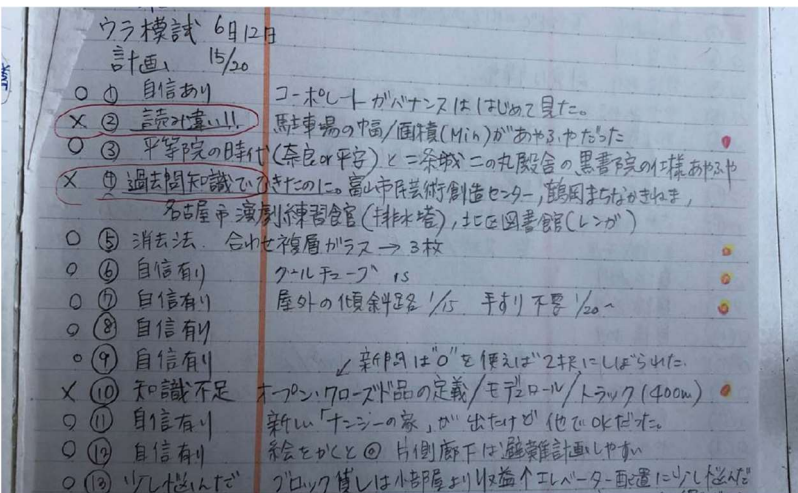 ウラ模試 6月12日
計画 15/20
○ ① 自信あり コーポレートガバナンスははじめて見た。
× ② 読み違い!! 駐車場の幅/面積(Min)があやふやだった
○ ③ 平等院の時代(奈良or平安)と二条城二の丸殿舎の黒書院の仕様あやふや
× ④ 過去問知識でできたのに。富山市民芸術創造センター,鶴岡まちなかきねま,
名古屋市演劇練習館(排水塔),北区図書館(レンガ)
○ ⑤ 消去法. 合わせ複層ガラス→3枚
○ ⑥ 自信有り クールチューブ is
○ ⑦ 自信有り 屋外の傾斜路 1/15 手すり不要 1/20~
○ ⑧ 自信有り
○ ⑨ 自信有り ↙新問は"0"を使えば2択にしぼられた.
× ⑩ 知識不足 オープン・クローズド品の定義/モデュロール/トラック(400m)
○ ⑪ 自信有り 新しい「ナンジーの家」が出たけど他でOKだった。
○ ⑫ 自信有り 絵をかくと◎ 片側廊下は避難計画しやすい
○ ⑬ 少し悩んだ ブロック貸しは小部屋より収益↑エレベーター配置に少し悩んだ